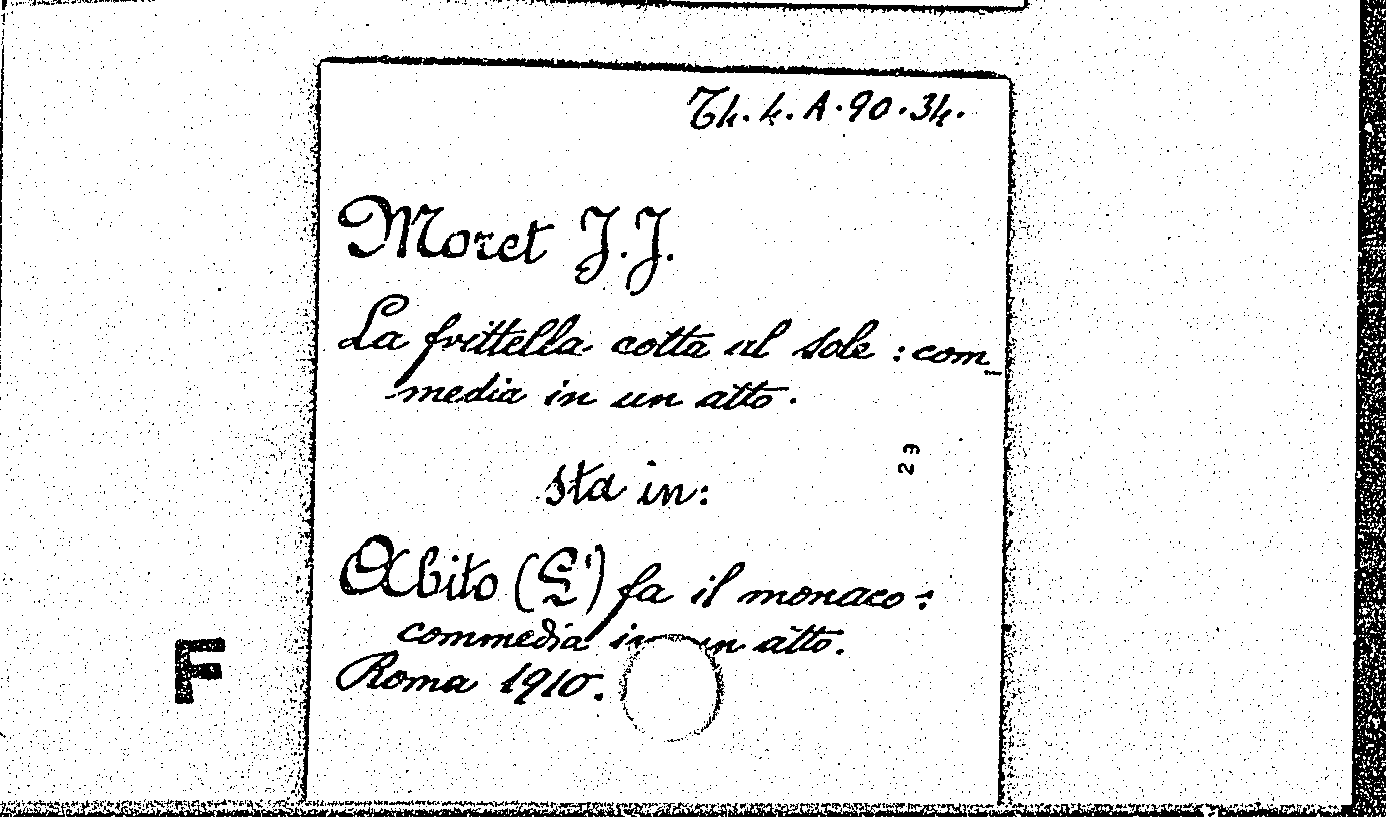 Th. k. A. 90. 34.
Moret J. J.
La frittella cotta al sole : com_
media in un atto.
29
sta in:
Abito (L') fa il monaco :
commedia in un atto.
Roma 1910.
F